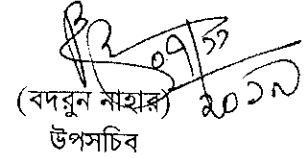 ০৭/১১
২০১৭
(বদরুন নাহার)
উপসচিব